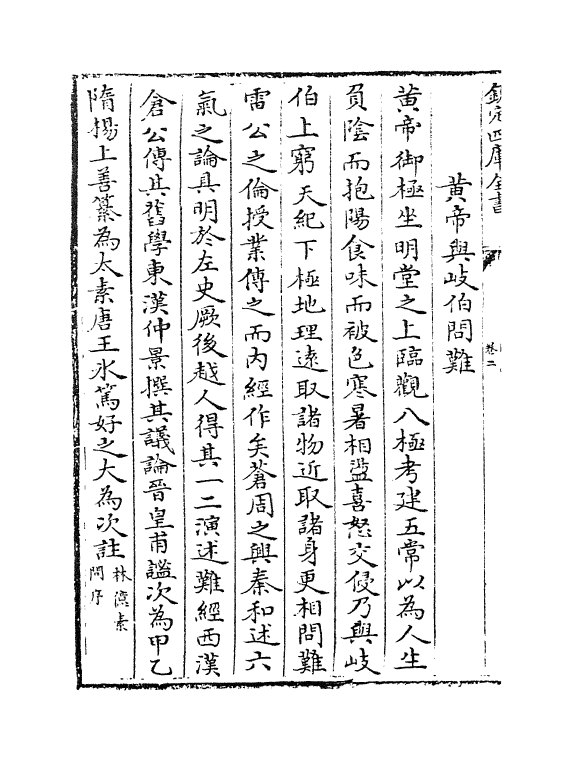 欽定四庫全書
卷二
黃帝與岐伯問難
黃帝御極坐明堂之上臨觀八極考建五常以為人生
負陰而抱陽食味而被色寒暑相盪喜怒交侵乃與岐
伯上窮天紀下極地理遠取諸物近取諸身更相問難
雷公之倫授業傳之而內經作矣蒼周之興秦和述六
氣之論具明於左史厥後越人得其一二演述難經西漢
倉公傳其舊學東漢仲景撰其議論晉皇甫謐次為甲乙
隋楊上善纂為太素唐王氷篤好之大為次註
林億素
問序